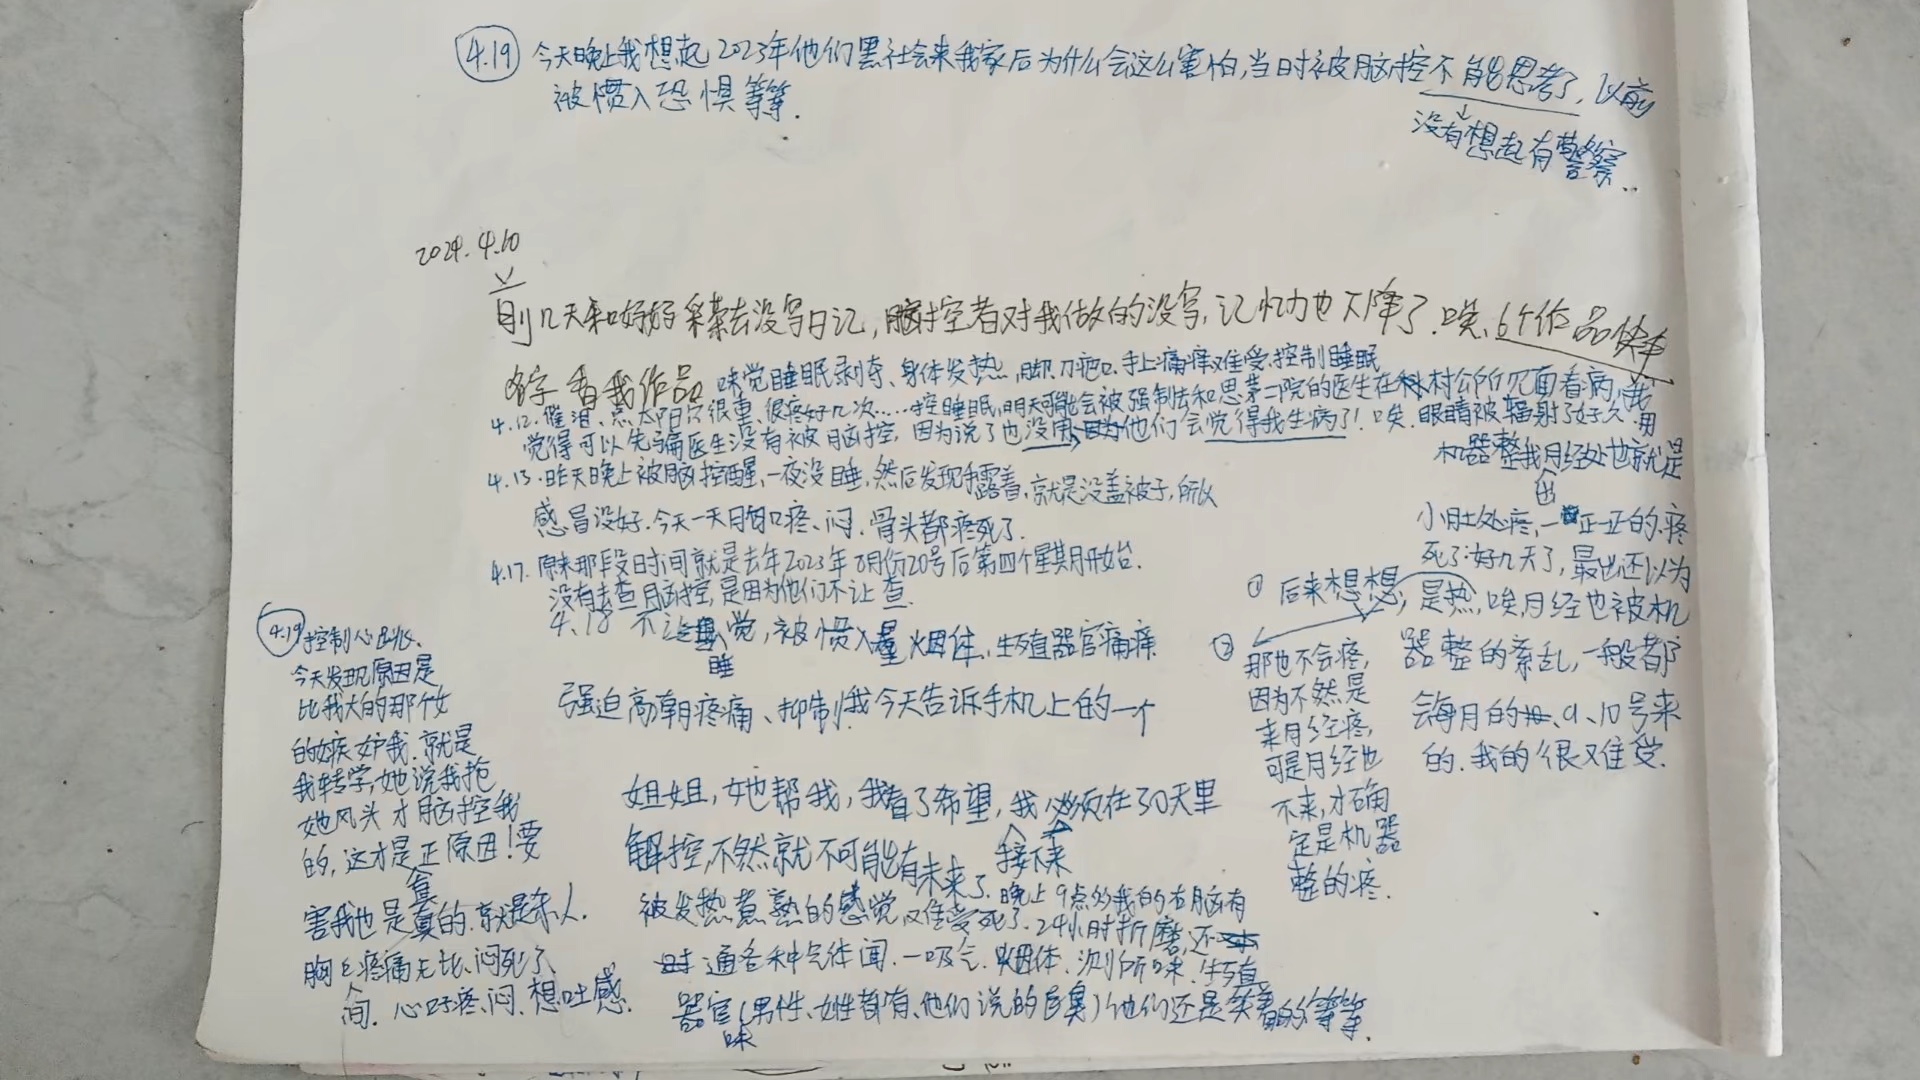 4.19 今天晚上我想起2023年他们黑社会来我家后为什么会这么害怕,当时被脑控不能思考了,以前
没有想起有警察..
被惯入恐惧等等.
2024.4.10
前几天和妈妈采茶去没写日记,脑控者对我做的没写,记忆力也下降了.唉、6个作品快来
看我作品
味觉睡眠剥夺、身体发热,脚刀疤口.手上痛痒难受.控制睡眠
4.12.催泪、点太阳穴很重、很疼好几次……控睡眠,明天可能会被强制去和思第二院的医生在村公所见面看病,我
觉得可以先骗医生没有被脑控,因为说了也没用,因为他们会觉得我生病了!唉.眼睛被辐射了好久.用
机器整我月经处也就是
小肚处疼,一正一正的.疼
死了.好几天了,最出还以为
是热,唉,月经也被机
器整的紊乱,一般都
会每月的、9、10号来
的.我的很难受.
① 后来想想,
② 那也不会疼,
因为不然是
来月经疼,
可是月经也
不来,才确
定是机器
整的疼.
4.13.昨天晚上被脑控醒,一夜没睡,然后发现手露着,就是没盖被子,所以
感冒没好.今天一天胸口疼、闷.骨头都疼死了.
4.17.原来那段日时间就是去年2023年8月份20号后第四个星期开始.
没有去查脑控,是因为他们不让查.
4.18 不让睡觉,被惯入量烟体、生殖器官痛痒
强迫高朝疼痛、抑制!我今天告诉手机上的一个
姐姐,她帮我,我看了希望,我必须在30天里
接下来
解控,不然就不可能有未来了.晚上9点多我的右脑有
被发热煮熟的感觉难受死了.24小时折磨,还
通各种气体闻.一吸气.烟体.测所味.生殖
器官味(男性、女性都有、他们说的)他们还是笑着的等等.
4.19 控制心出.
今天发现原因是
比我大的那个女
的嫉妒我.就是
我转学,她说我抢
她风头才脑控我
的,这才是真正原因!要
害我也是真的.就是杀人.
胸口疼痛无比、闷死了、
间.心口好疼、闷、想吐感.